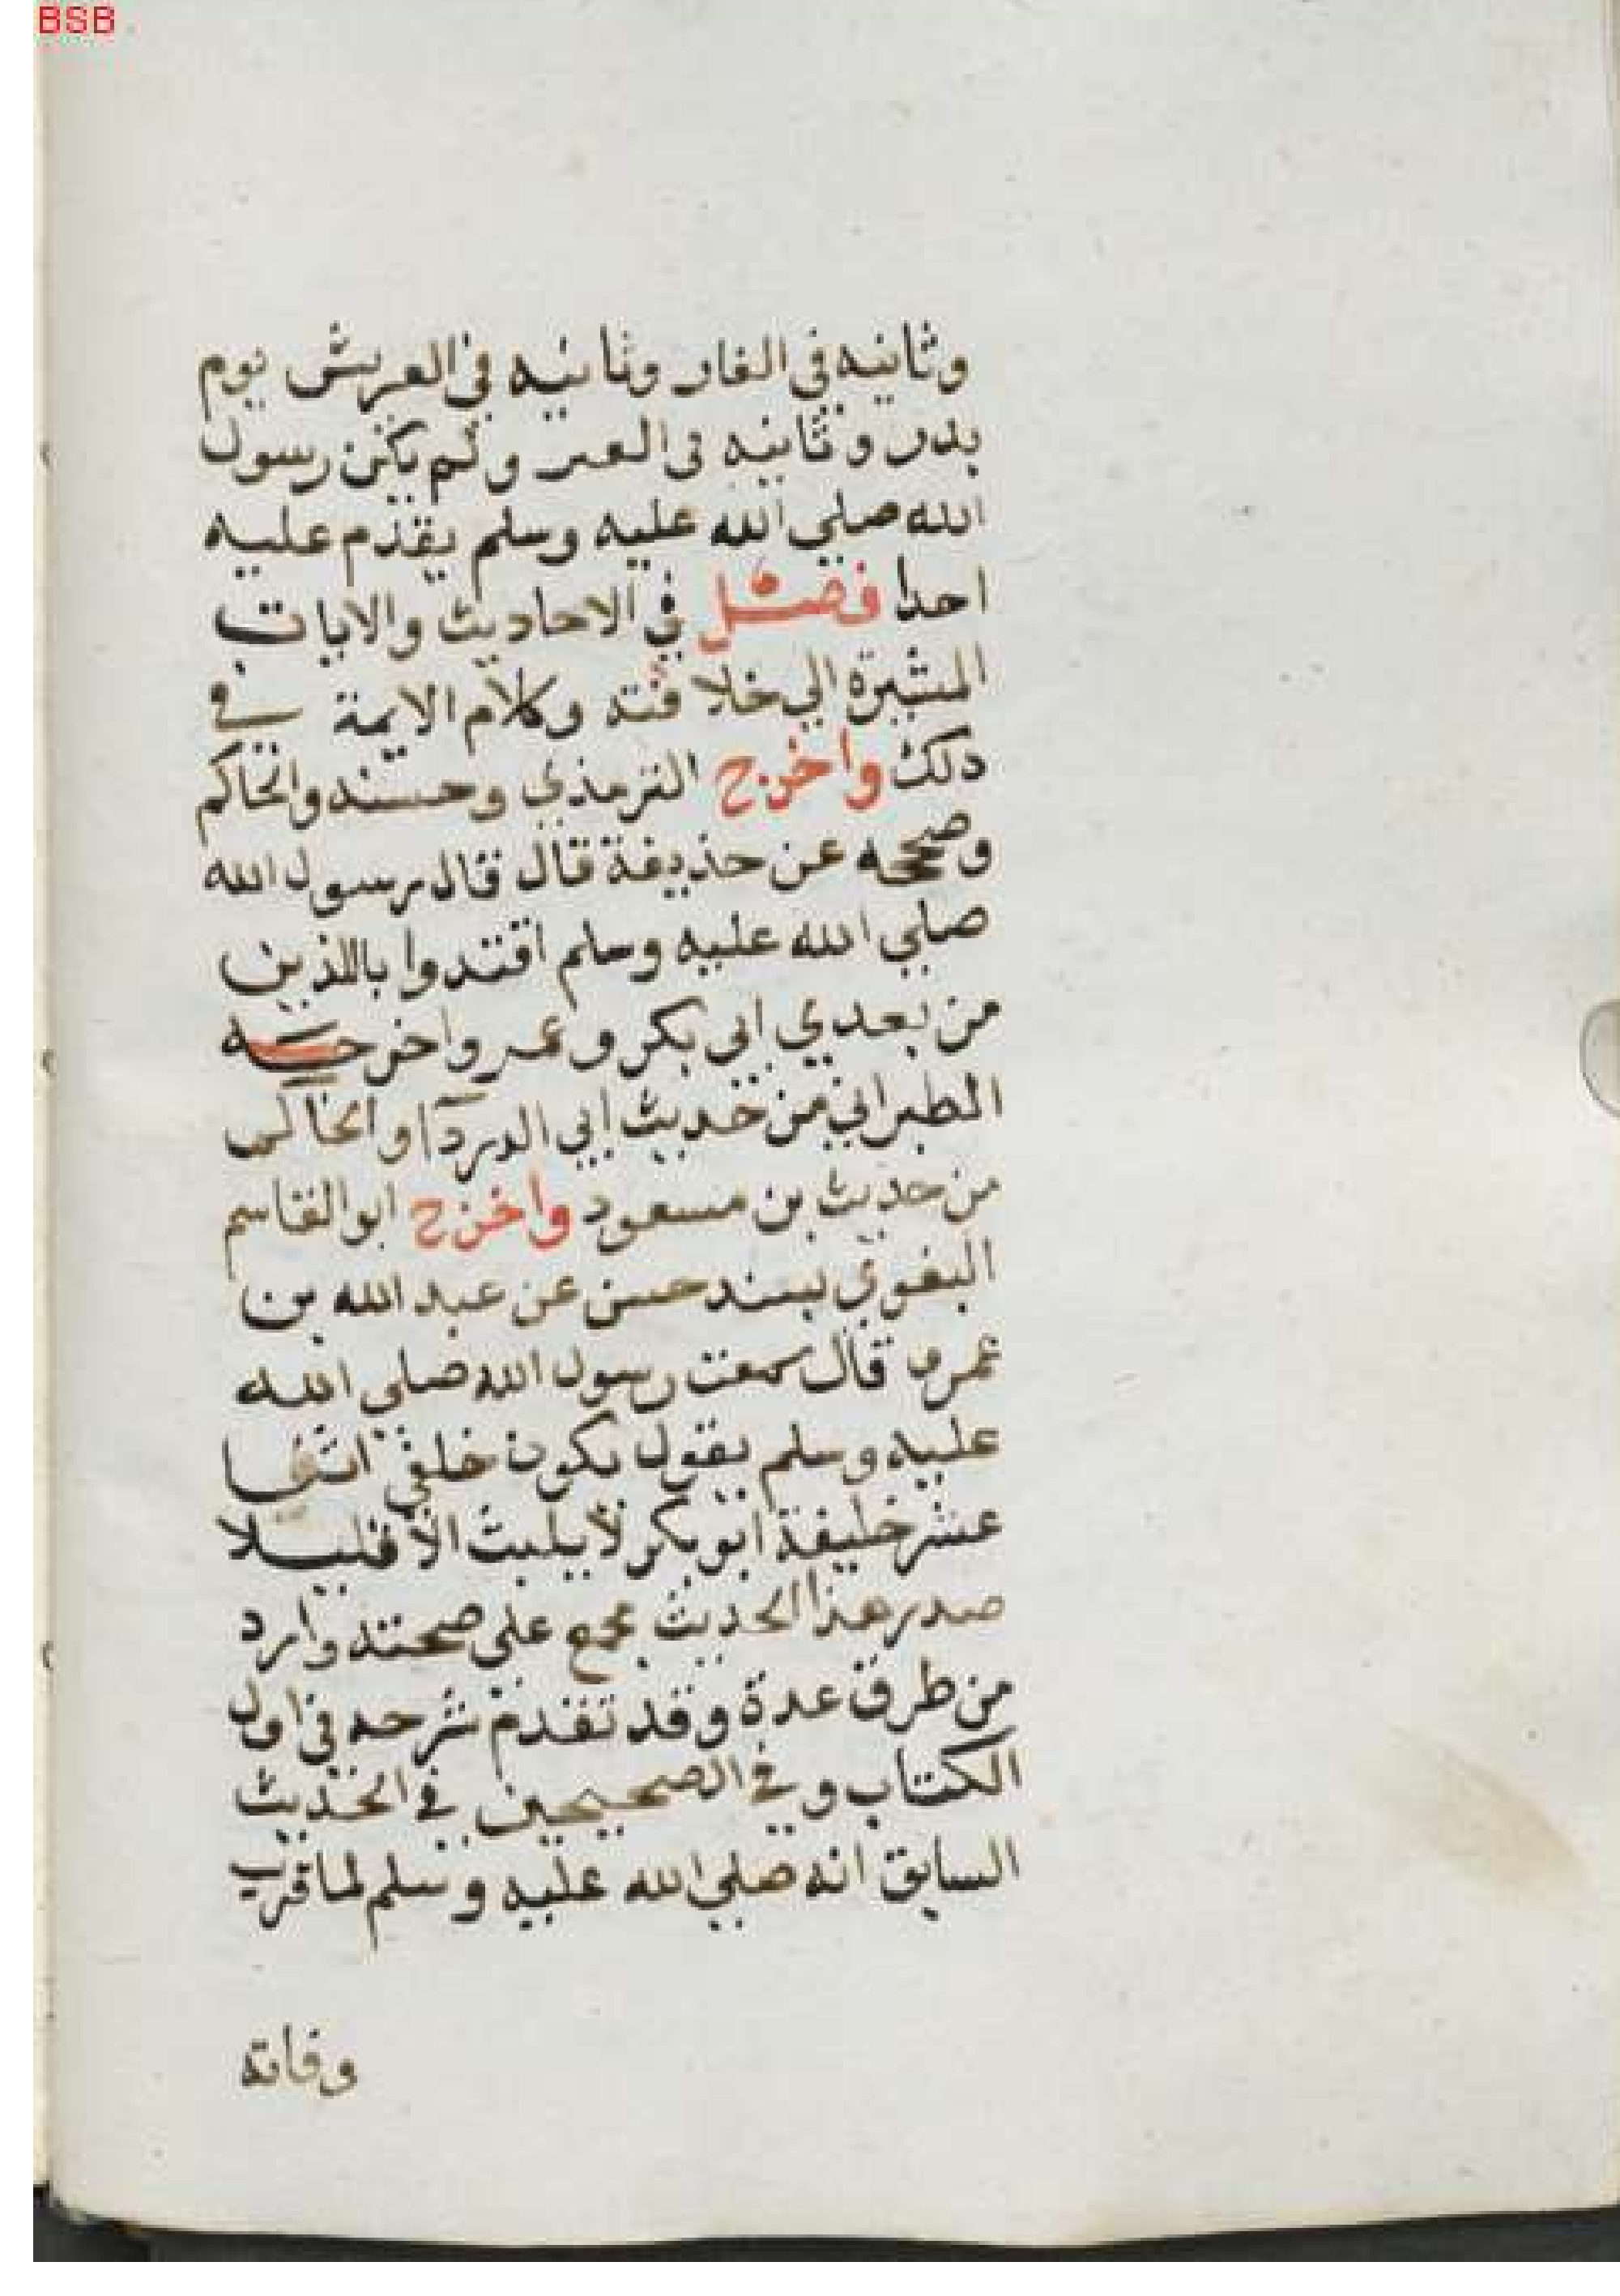 BSB
وثانيه في الغار وثانيه في العريش يوم
بدر وثانيه في العبر ولم يكن رسول
الله صلي الله عليه وسلم يقدم عليه
احدا فصل في الاحاديث والايات
المشيرة الي خلافته وكلام الايمة في
ذلك واخرج الترمذي وحسنه والحاكم
وصححه عن حذيفة قال قال رسول الله
صلي الله عليه وسلم اقتدوا باللذين
من بعدي ابي بكر وعمر واخرجه
الطبراني من حديث ابي الدردآ والحاكم
من حديث بن مسعود واخرج ابو القاسم
البغوي بسند حسن عن عبد الله بن
عمرو قال سمعت رسول الله صلي الله
عليه وسلم يقول يكون خلفي اثنا
عشر خليفة ابو بكر لا يلبث الا قليلا
صدر هذا الحديث مجمع على صحته وارد
من طرق عدة وقد تقدم شرحه في اول
الكتاب وفي الصحيحين في الحديث
السابق انه صلي الله عليه وسلم لما قرب
وفاته